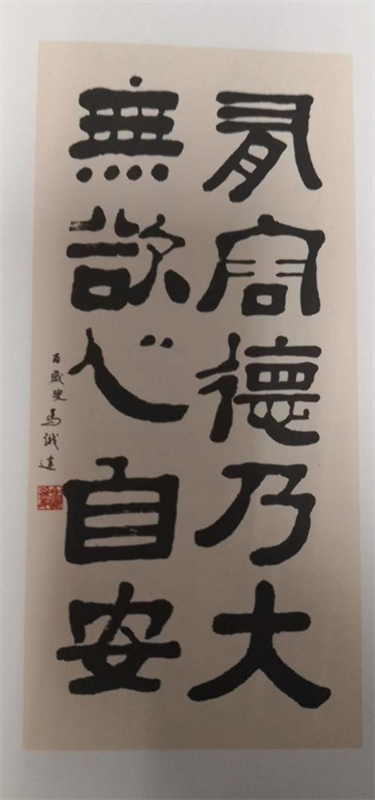 有容德乃大
無欲心自安
百歲叟馬識途